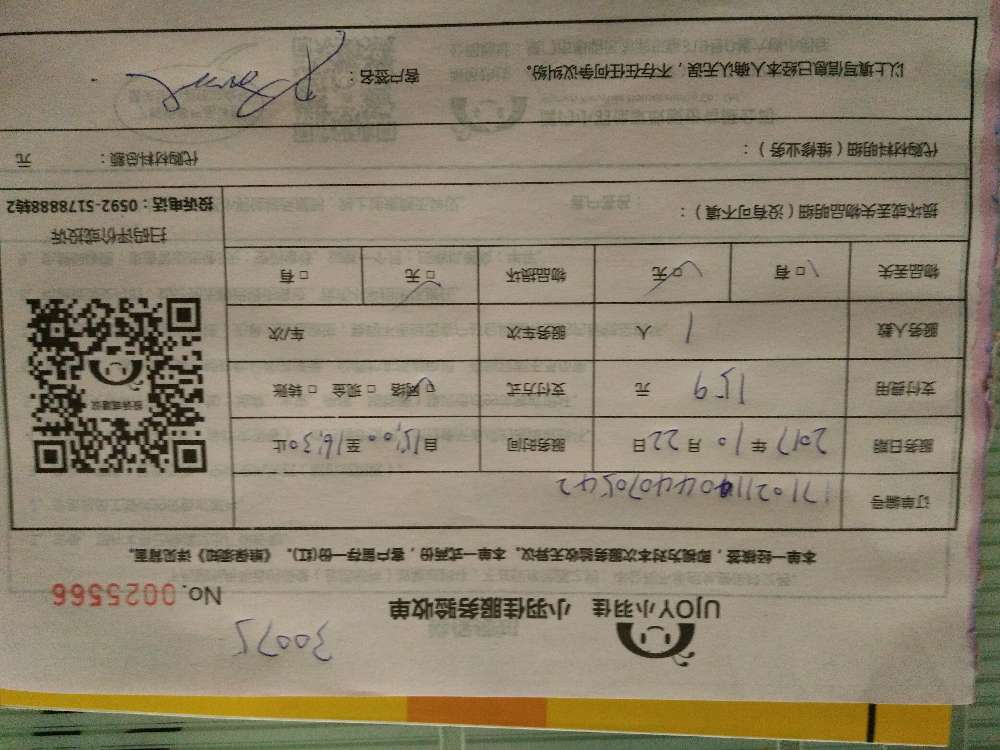 30075
UJOY小羽佳 小羽佳服务验收单 No.0025566
本单一经核签,即视为对本次服务验收无异议。本单一式两份,客户留存一份(红)。《维保须知》详见背面。
订单编号
服务日期 2017 年 10 月 22 日 服务时间 自 15:00 至 16:30 止
支付费用 159 元 支付方式 □ 网络 □ 现金 □ 转账
服务人数 1 人 服务车次 车/次
物品丢失 □ 有 □ 无 物品损坏 □ 无 □ 有
投诉或建议
扫码评价或投诉
投诉电话:0592-5178888转2
损坏或丢失物品明细(没有可不填):
代购材料明细(维修业务): 代购材料总额: 元
以上填写信息已经本人确认无误,不存在任何争议纠纷。 客户签名: